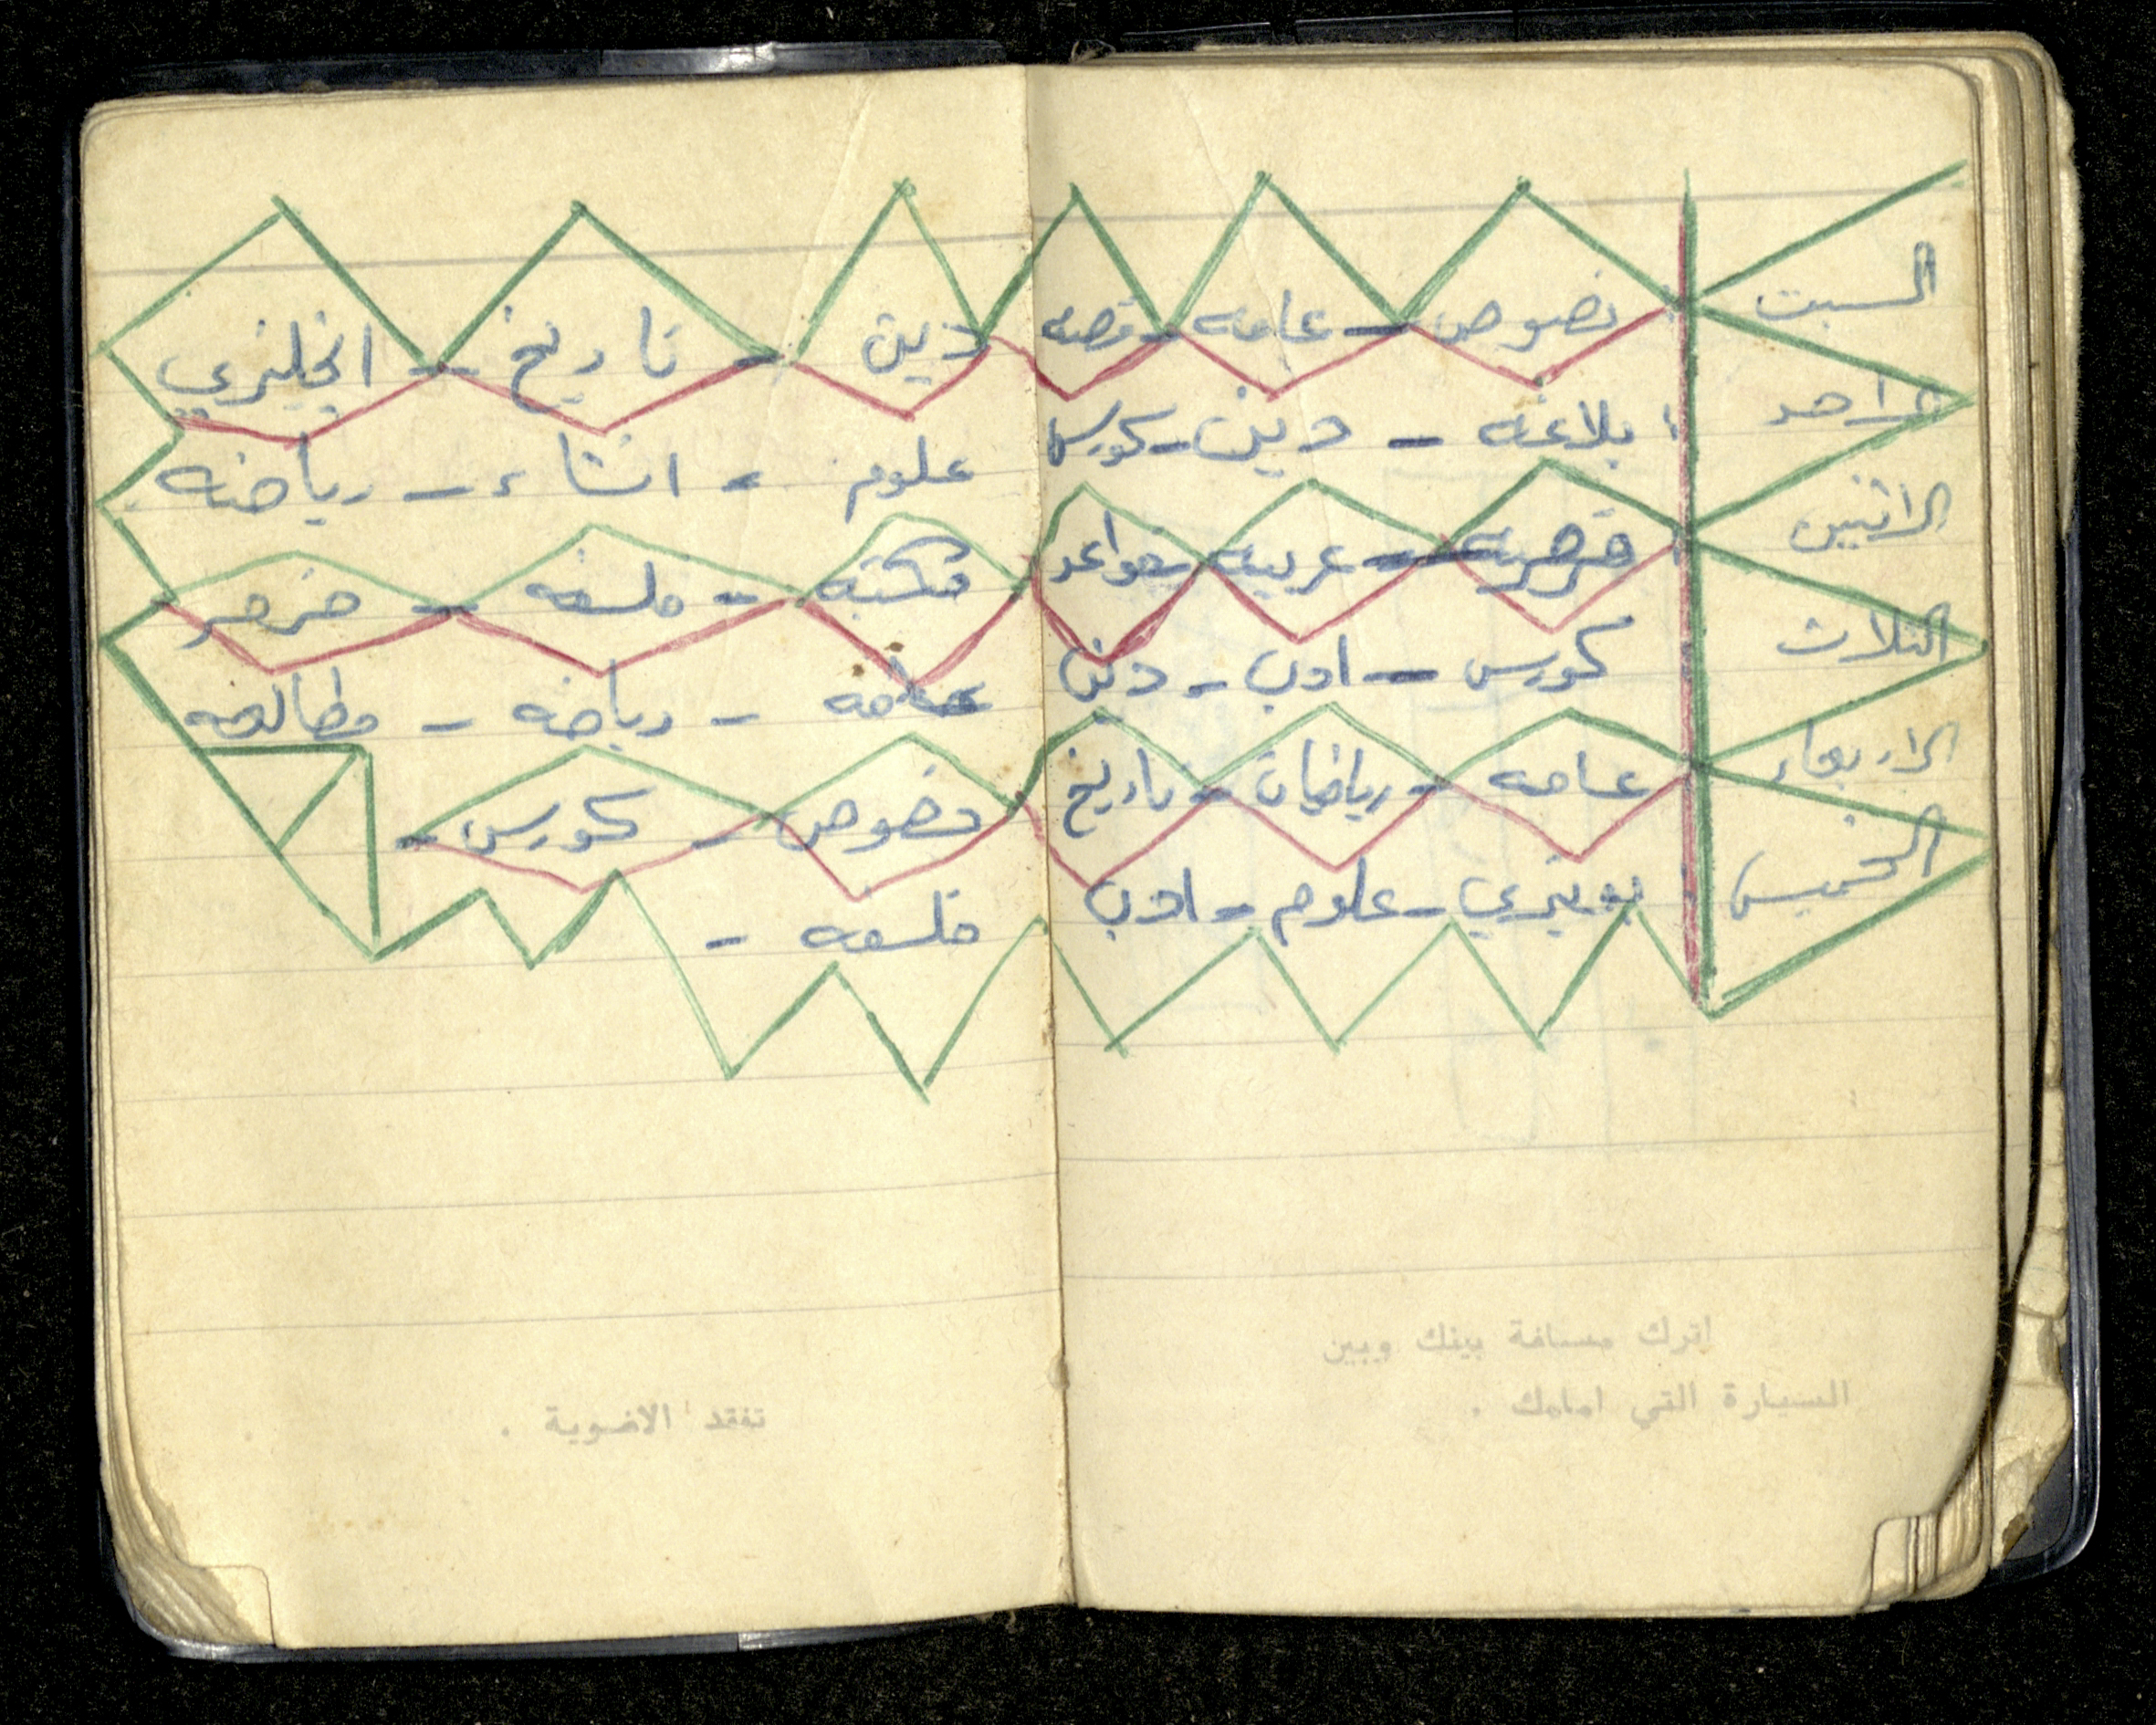 السبت نصوص - عامه - قصه دين - تاريخ - انجليزي
الاحد بلاغه - دين - كورس علوم - انشاء - رياضه
الاثنين عربيه - قواعد مكتبه - فلسفه
الثلاث كورس - ادب - دين عامه - رياضه - مطالعه
الاربعاء عامه - رياضيات - تاريخ نصوص - كورس -
الخميس - علوم - ادب فلسفه -
اترك مسافة بينك وبين
السيارة التي امامك .
تفقد الاضوية .